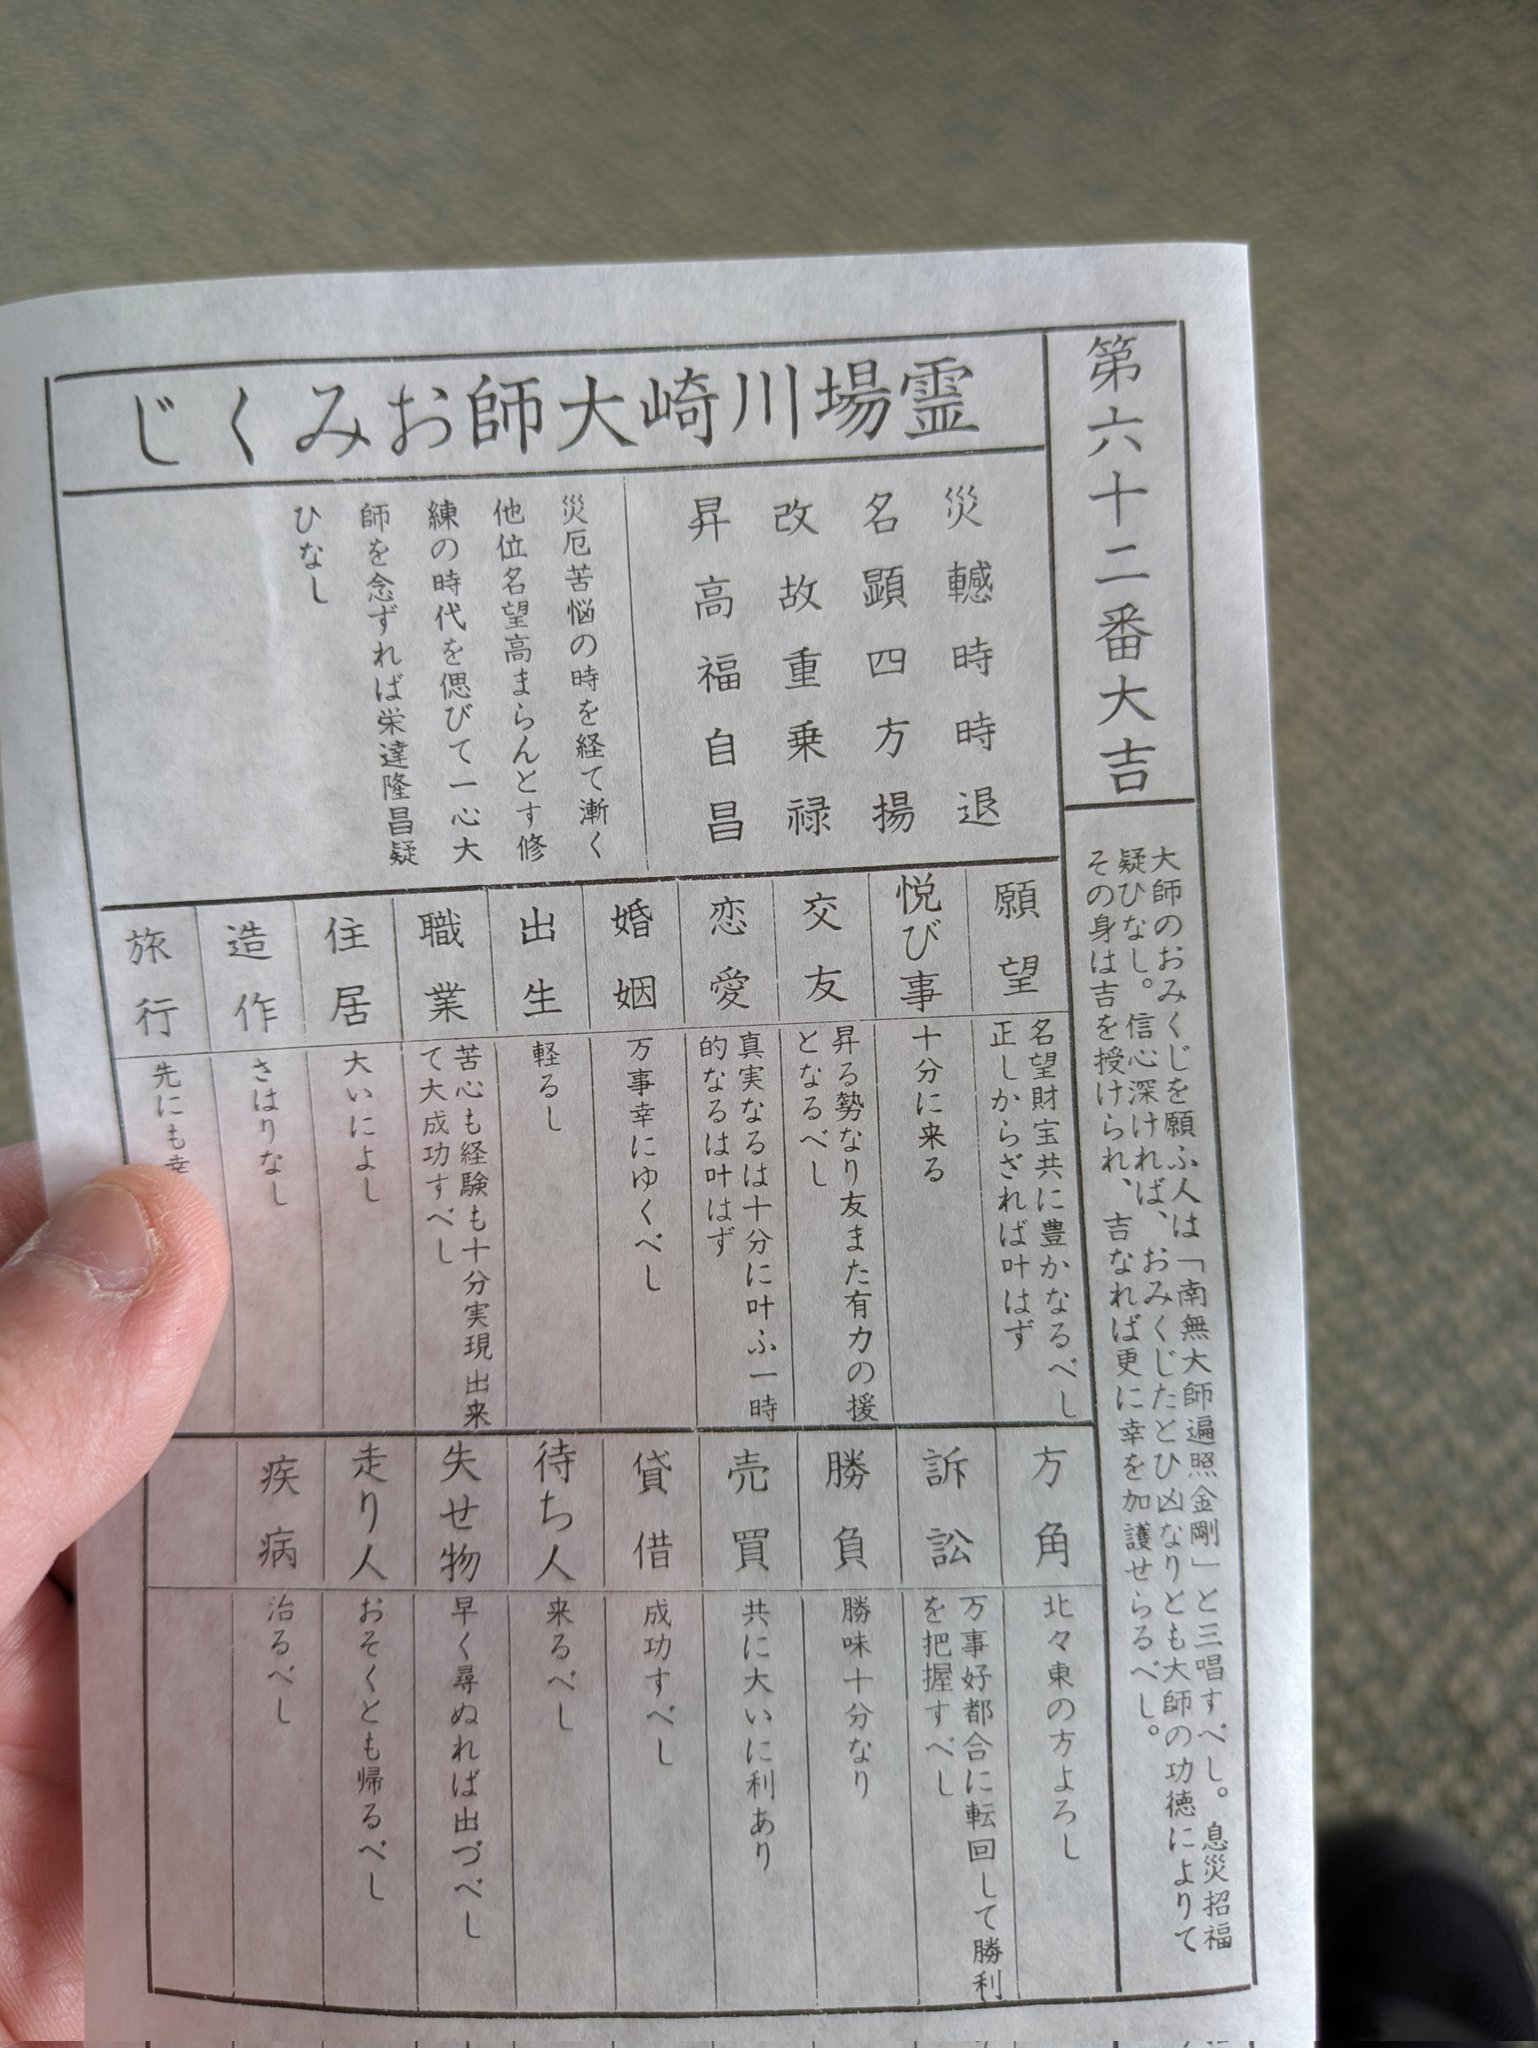 第六十二番大吉
大師のおみくじを願ふ人は「南無大師遍照金剛」と三唱すべし。息災招福
疑ひなし。信心深ければ、おみくじたとひ凶なりとも大師の功徳によりて
その身は吉を授けられ、吉なれば更に幸を加護せらるべし。
霊場川崎大師おみくじ
災轗時時退
名顕四方揚
改故重乗禄
昇高福自昌
災厄苦悩の時を経て漸く
他位名望高まらんとす修
練の時代を偲びて一心大
師を念ずれば栄達隆昌疑
ひなし
願望
名望財宝共に豊かなるべし
正しからざれば叶はず
悦び事
十分に来る
交友
昇る勢なり友また有力の援
となるべし
恋愛
真実なるは十分に叶ふ一時
的なるは叶はず
婚姻
万事幸にゆくべし
出生
軽るし
職業
苦心も経験も十分実現出来
て大成功すべし
住居
大いによし
造作
さはりなし
旅行
先にも幸
方角
北々東の方よろし
訴訟
万事好都合に転回して勝利
を把握すべし
勝負
勝味十分なり
売買
共に大いに利あり
貸借
成功すべし
待ち人
来るべし
失せ物
早く尋ぬれば出づべし
走り人
おそくとも帰るべし
疾病
治るべし